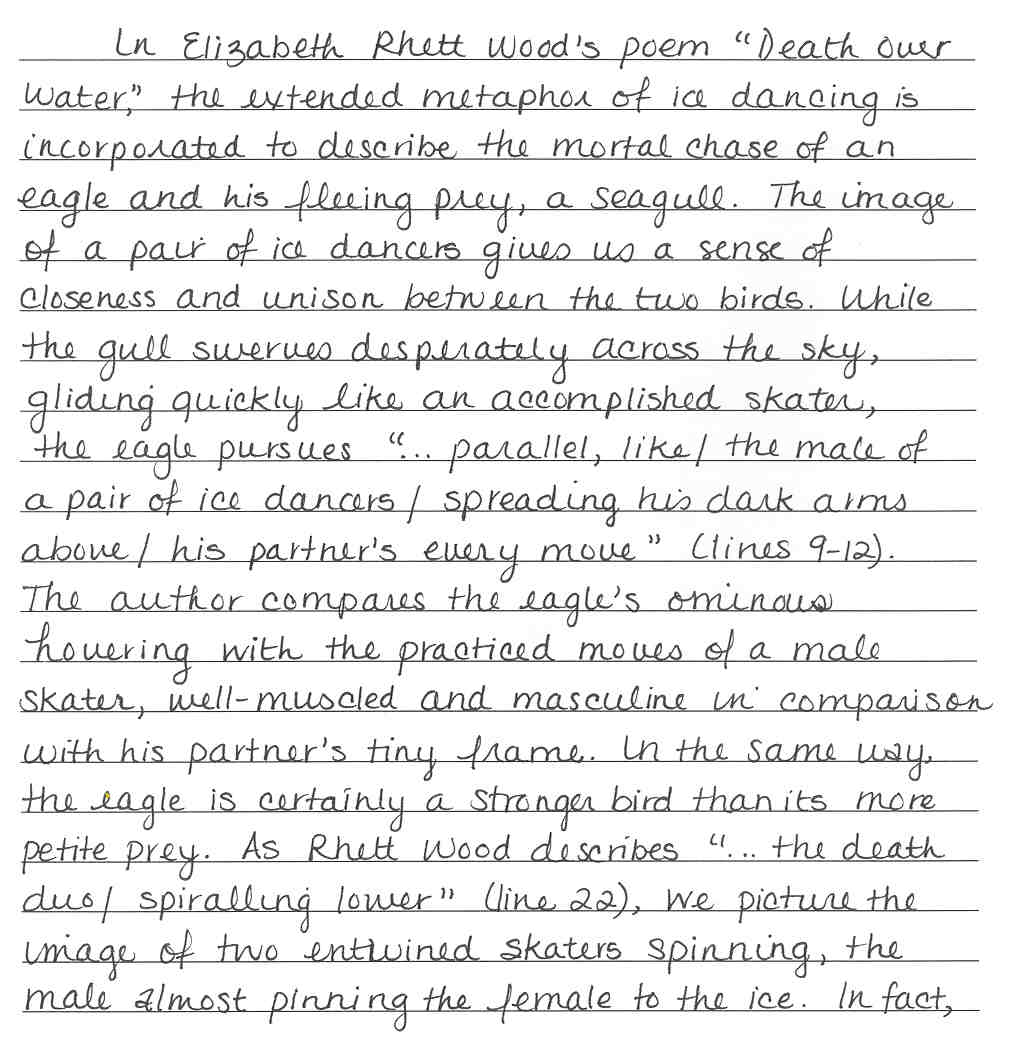 In Elizabeth Rhett Wood's poem "Death Over
Water," the extended metaphor of ice dancing is
incorporated to describe the mortal chase of an
eagle and his fleeing prey, a seagull. The image
of a pair of ice dancers gives us a sense of
closeness and unison between the two birds. While
the gull swerves desperately across the sky,
gliding quickly like an accomplished skater,
the eagle pursues "... parallel, like/ the male of
a pair of ice dancers/ spreading his dark arms
above/ his partner's every move" (lines 9-12).
The author compares the eagle's ominous
hovering with the practiced moves of a male
skater, well-muscled and masculine in comparison
with his partner's tiny frame. In the same way,
the eagle is certainly a stronger bird than its more
petite prey. As Rhett Wood describes "... the death
duo/ spiralling lower" (line 22), we picture the
image of two entwined skaters spinning, the
male almost pinning the female to the ice. In fact,